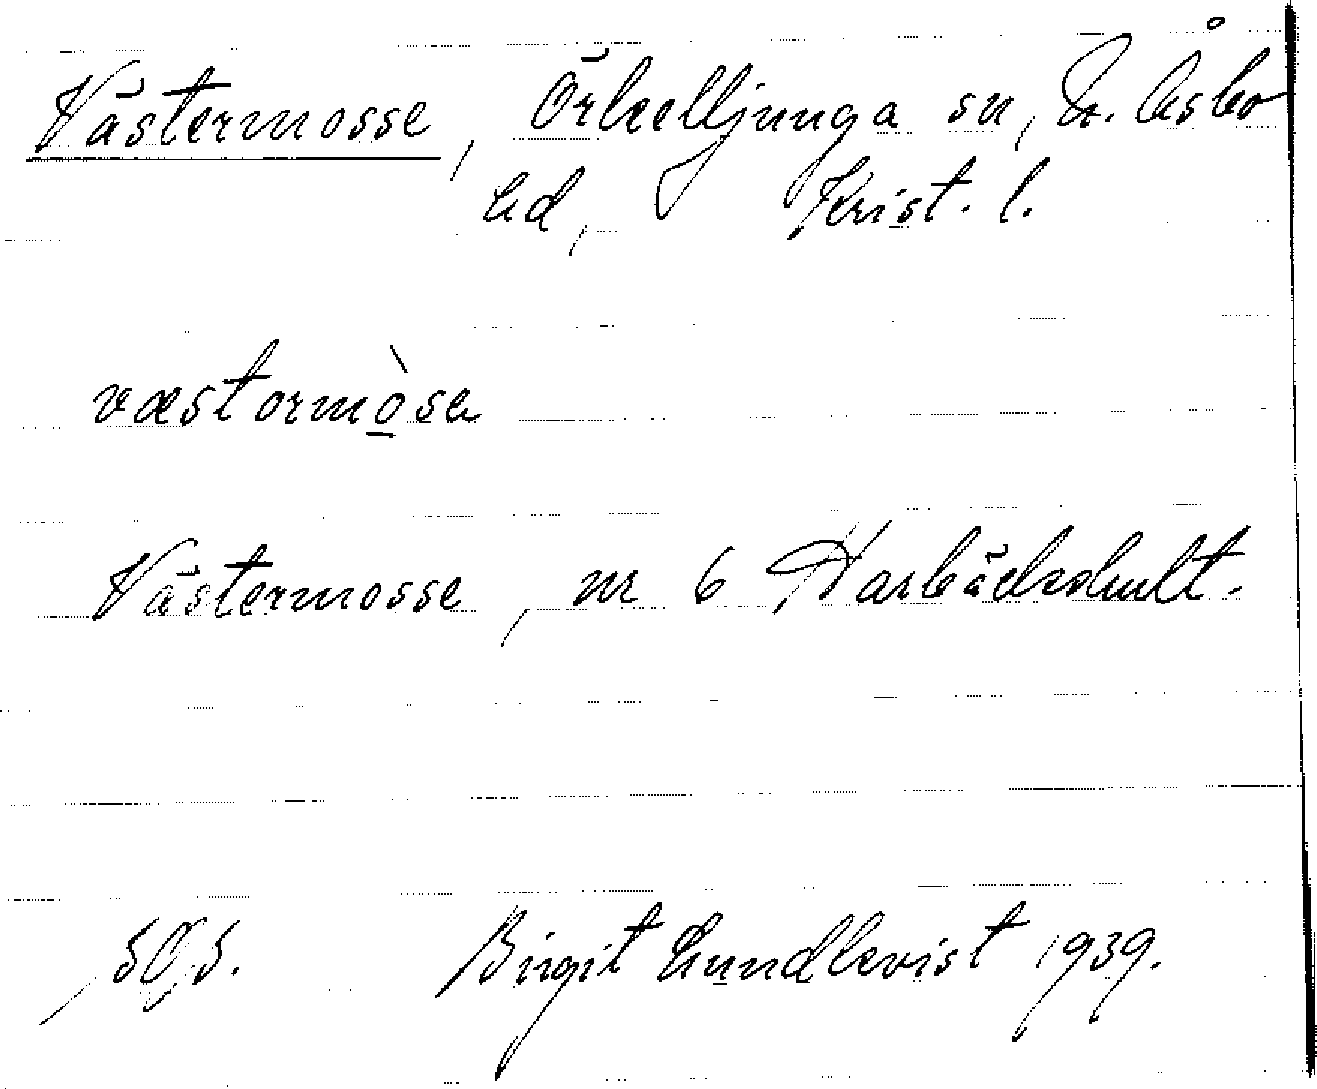 Västermosse, Örkelljunga sn, N. Åsbo
hd, Krist. l.
væstormòsa
Västermosse, nr 6 Harbäckshult.
Birgit Lundkvist 1939.